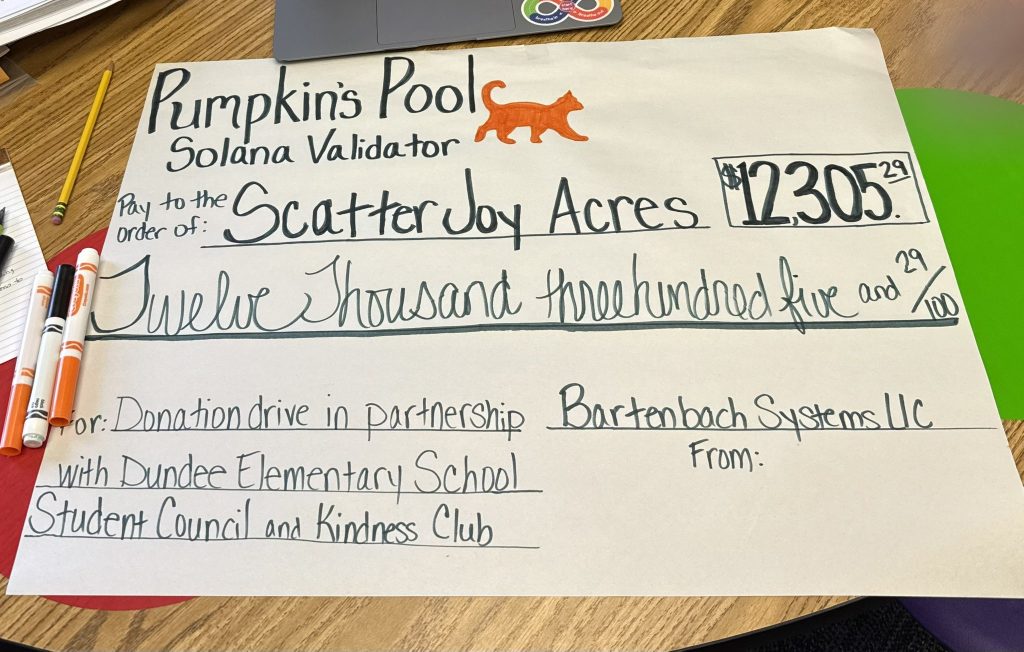 Pumpkin's Pool
Solana Validator
Pay to the
order of: Scatter Joy Acres
$12,305.29
Twelve Thousand three hundred five and 29/100
For: Donation drive in partnership
with Dundee Elementary School
Student Council and Kindness Club
Bartenbach Systems LLC
From: